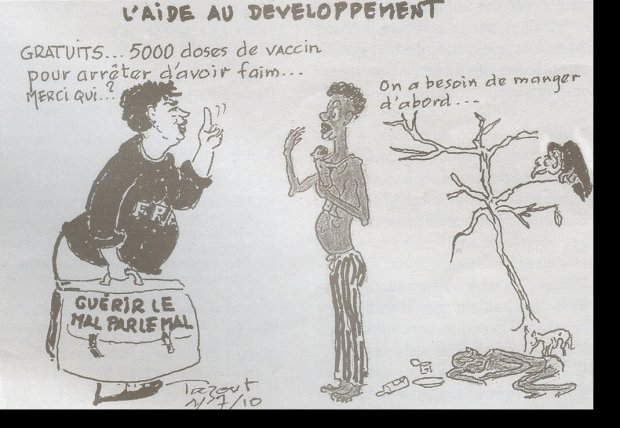 L'AIDE AU DEVELOPPEMENT
GRATUITS... 5000 doses de vaccin
pour arrêter d'avoir faim...
MERCI QUI...?
On a besoin de manger
d'abord...
GUÉRIR LE
MAL PAR LE MAL